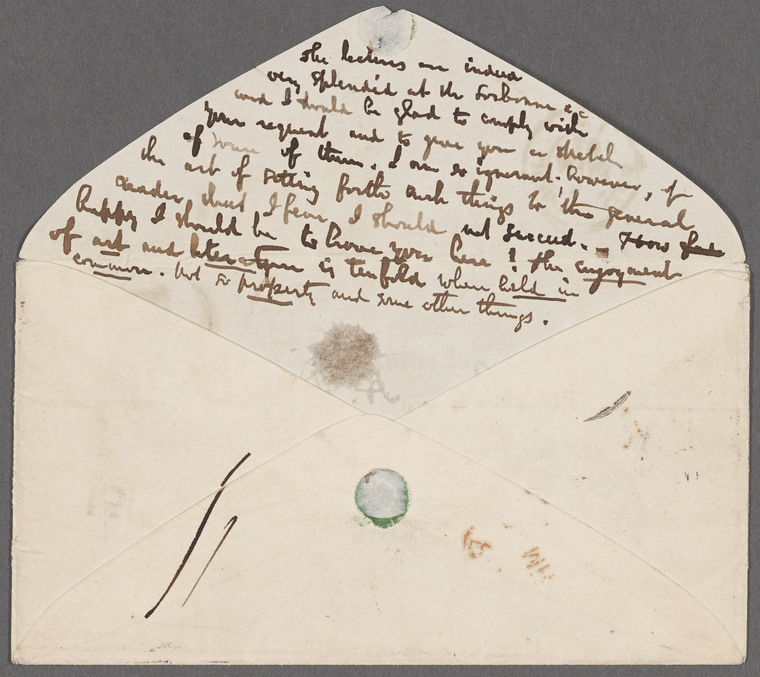 The lectures are indeed
very splendid at the Sorbonne &c
and I should be glad to comply with
your request and to give you a sketch
of some of them. I am so ignorant; however, of
the art of setting forth such things to the general
reader that I fear I should not succeed. – How
happy I should be to have you here! the enjoyment
of art and literature is tenfold when held in
common. not so property and some other things.